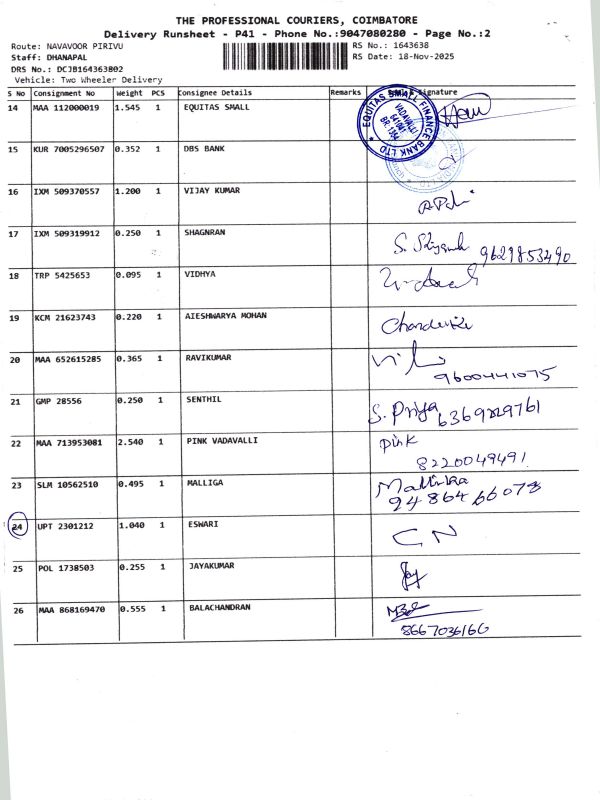 THE PROFESSIONAL COURIERS, COIMBATORE
Delivery Runsheet - P41 - Phone No.:9047080280 - Page No.:2
Route: NAVAVOOR PIRIVU RS No.: 1643638
Staff: DHANAPAL RS Date: 18-Nov-2025
DRS No.: DCJB164363802
Vehicle: Two Wheeler Delivery
S No Consignment No Weight PCS Consignee Details Remarks Signature
14 MAA 112000019 1.545 1 EQUITAS SMALL
EQUITAS SMALL FINANCE BANK LTD
VADAVALLI
641041
BR. 1354
15 KUR 7005296507 0.352 1 DBS BANK
16 IXM 509370557 1.200 1 VIJAY KUMAR
17 IXM 509319912 0.250 1 SHAGNRAN
9629853490
18 TRP 5425653 0.095 1 VIDHYA
19 KCM 21623743 0.220 1 AIESHWARYA MOHAN
20 MAA 652615285 0.365 1 RAVIKUMAR
9600441075
21 GMP 28556 0.250 1 SENTHIL S. Priya
22 MAA 713953081 2.540 1 PINK VADAVALLI Pink
8220049491
23 SLM 10562510 0.495 1 MALLIGA Mallika
94864 66073
24 UPT 2301212 1.040 1 ESWARI CN
25 POL 1738503 0.255 1 JAYAKUMAR Jay
26 MAA 868169470 0.555 1 BALACHANDRAN
8667036166